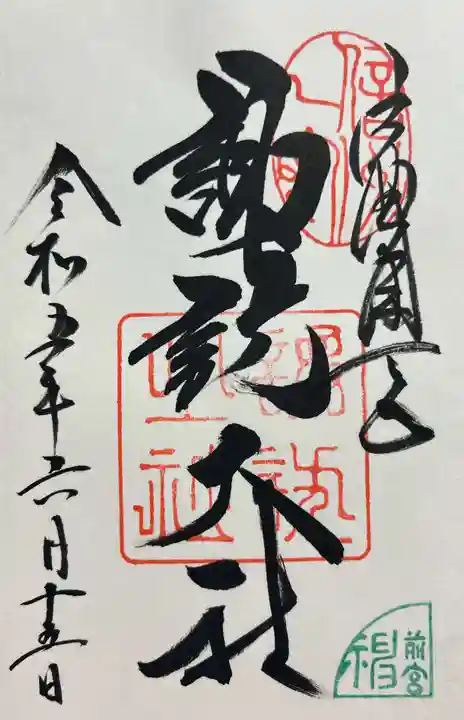 信濃國一之宮
諏訪大社
令和五年六月十五日
諏訪
大社
前宮